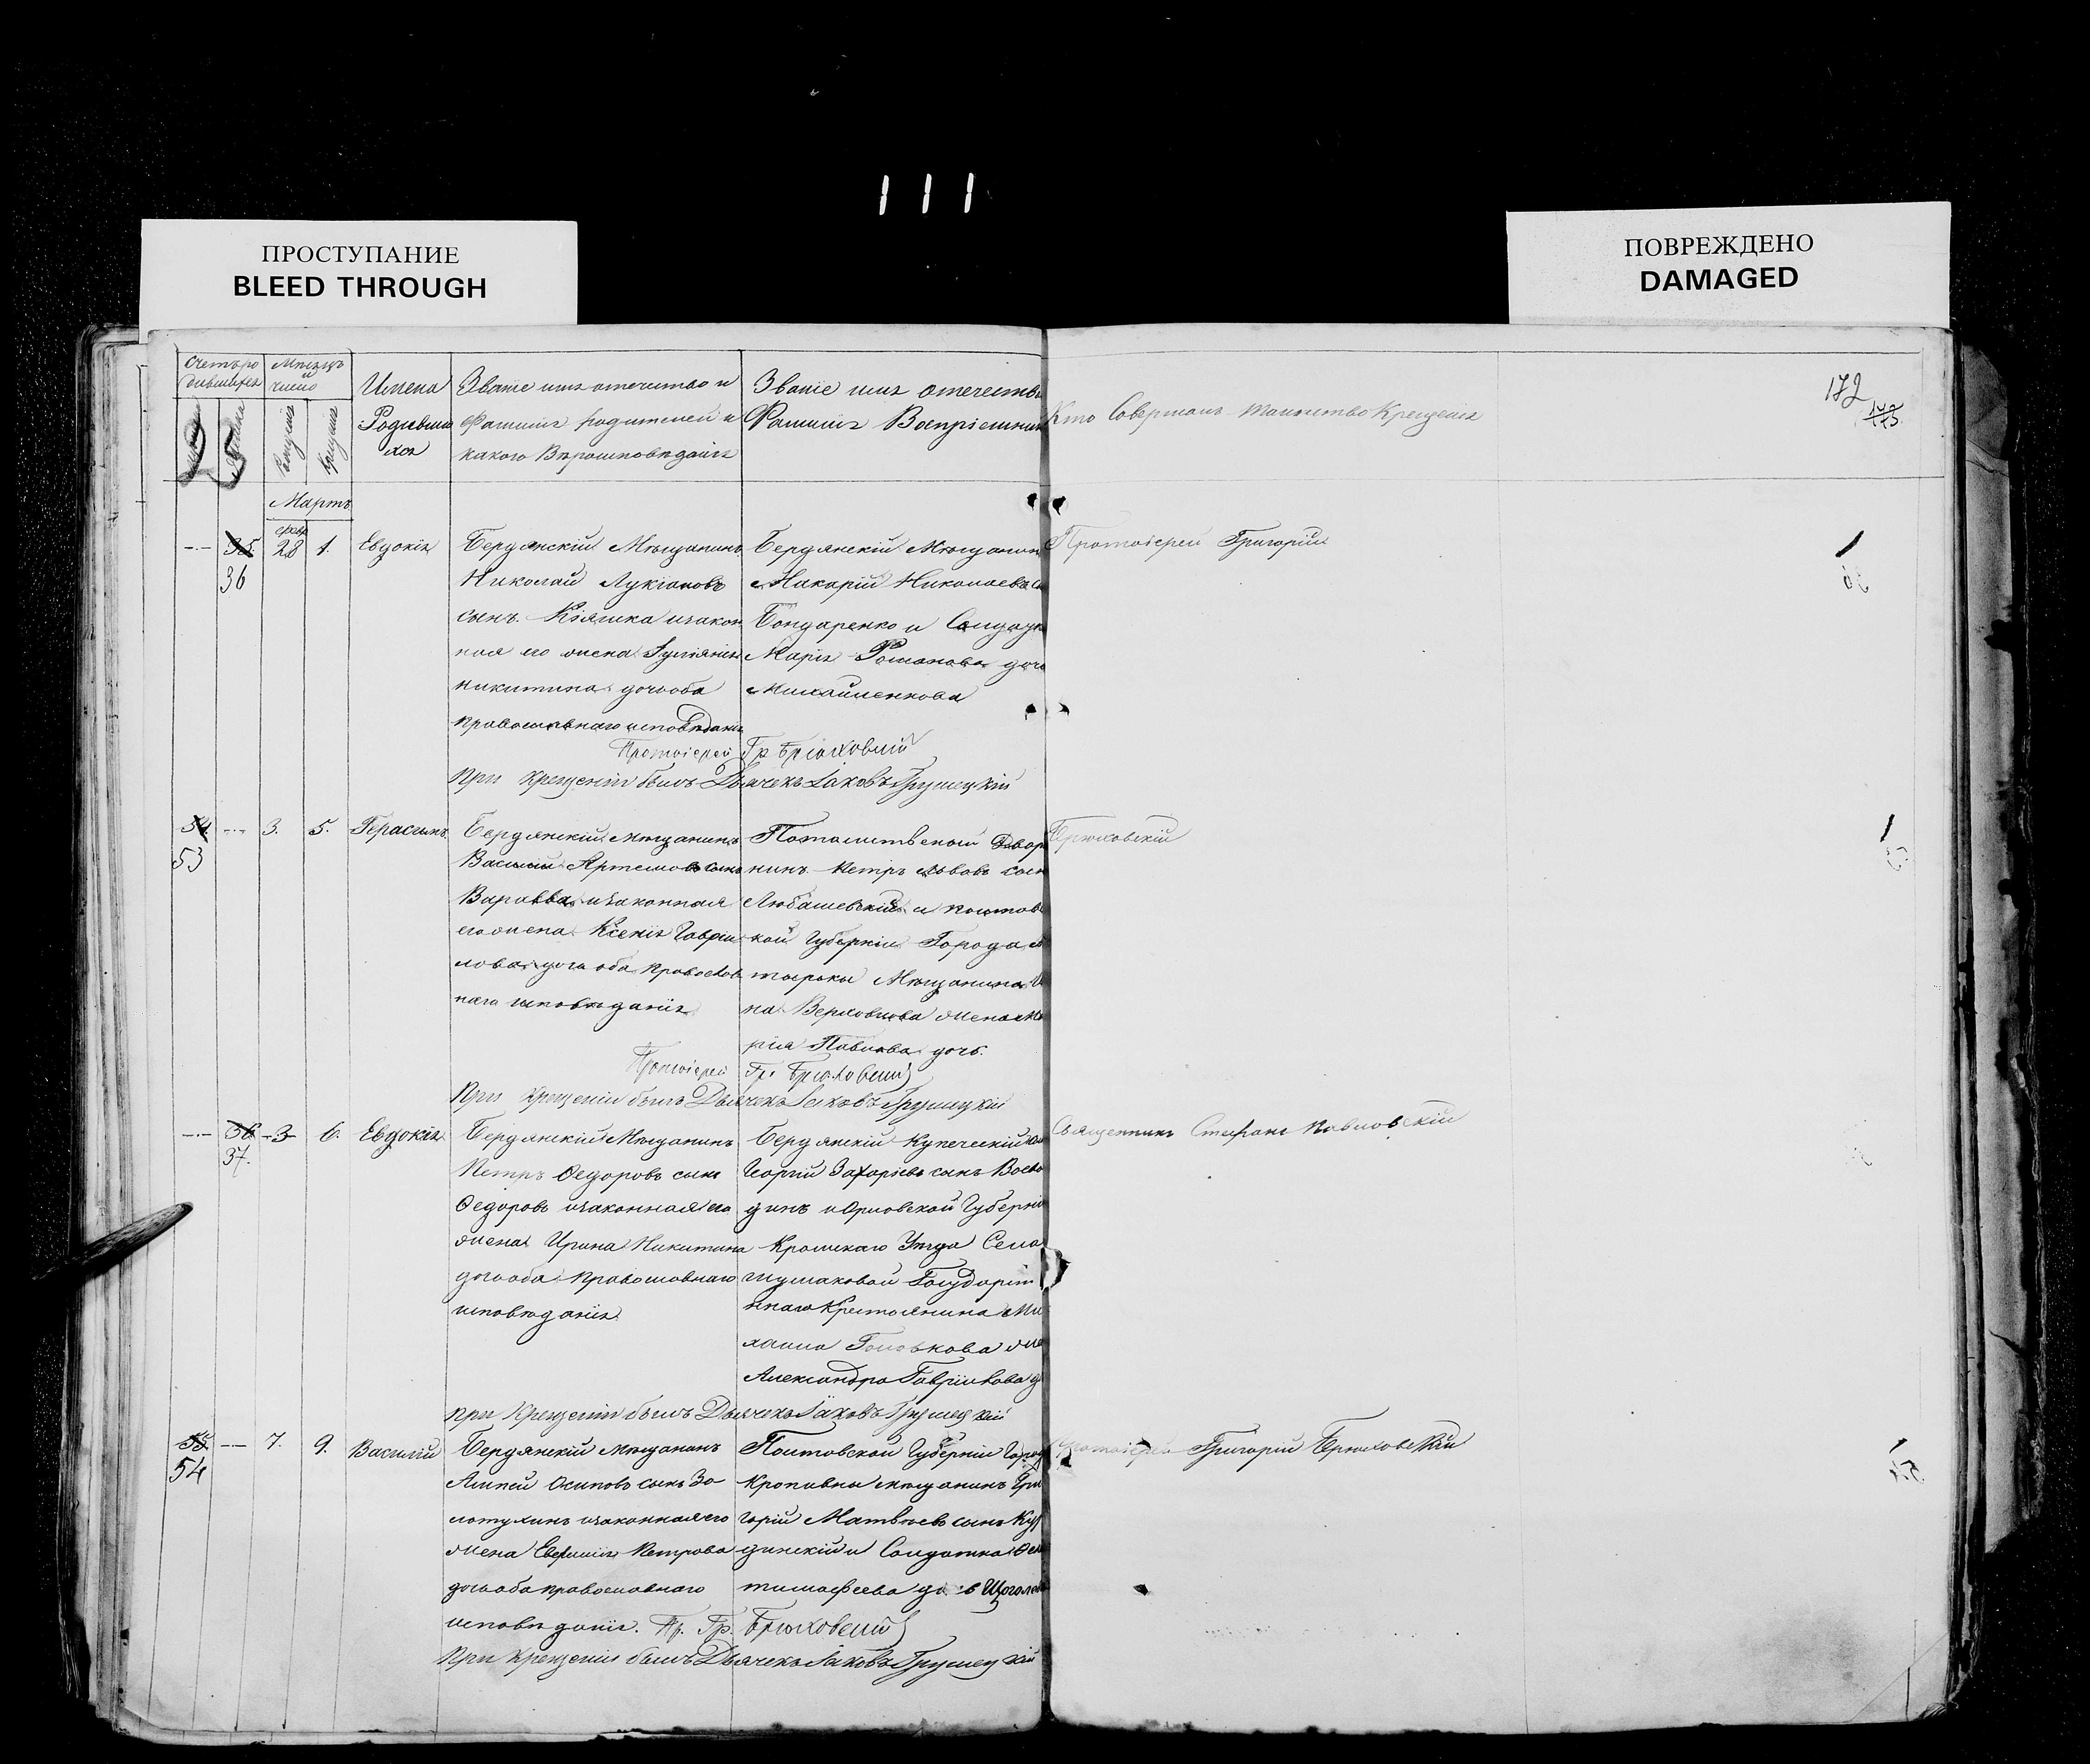 111
ПРОСТУПАНИЕ
BLEED THROUGH
ПОВРЕЖДЕНО
DAMAGED
172
Имена
Родивши
хся
Званіе имя отечество и
Фамилія родителей и
какого Вѣроисповѣданія
Званіе имя отечество
Фамилія Воспріемник
Кто Совершалъ таинство Крещенія
Мартъ
35 28 1. Евдокія
36
Бердянскій Мѣщанинъ
Николай Лукіановъ
сынъ
ная его жена
Никитина дочь оба
православнаго исповѣданія
Бердянскій Мѣщанин
Макарій Николаевъ
Бондаренко и
Марія Романова доч
Михайленкова
Протоіерей Григорій
Протоіерей Гр Брюховскій
При крещеніи былъ Дьячекъ Іаковъ Грушецкій
54 3. 5. Герасимъ
53
Бердянскій Мѣщанинъ
Василій Артемовъ сынъ
Варавва и законная
его жена Ксенія Гаврiи
лова дочь оба православ
наго исповѣданія
Потомственный Двор
нинъ Петръ Львовъ сын
Любашевскій и Полтавс
кой Губерніи Города
Мѣщанина И
на жена Ма
рія Павлова дочь.
Брюховскій
Протоіерей Гр. Брюховскій
При крещеніи былъ Дьячекъ Іаковъ Грушецкій
36 3 6. Евдокія
37.
Бердянскій Мѣщанинъ
Петръ Ѳедоровъ сынъ
Ѳедоровъ и законная его
жена Ирина Никитина
дочь оба православнаго
исповѣданія
Бердянскій Купеческій
Георгій Захаріевъ сынъ Воево
динъ и Орловской Губерні
Кромскаго Уѣзда Села
Государст
ннаго Крестьянина Ми
хаила Головкова же
Александра Гаврилова д
Священникъ Стефанъ Павловскій
При Крещеніи былъ Дьячекъ Іаковъ Грушецкій
55 7. 9. Василій
54
Бердянскій мѣщанинъ
Осиповъ сынъ Зо
лотухинъ и законная его
жена Евфимія Петрова
дочь оба православнаго
исповѣданія. Пр. Гр. Брюховскій
Полтавской Губерніи Город
Кропивны мѣщанинъ Гри
горій Матвѣевъ сынъ
динскій и Солдатка
тимофеева
Протоіерей Григорій Брюховскій
При крещеніи былъ Дьячекъ Іаковъ Грушецкій